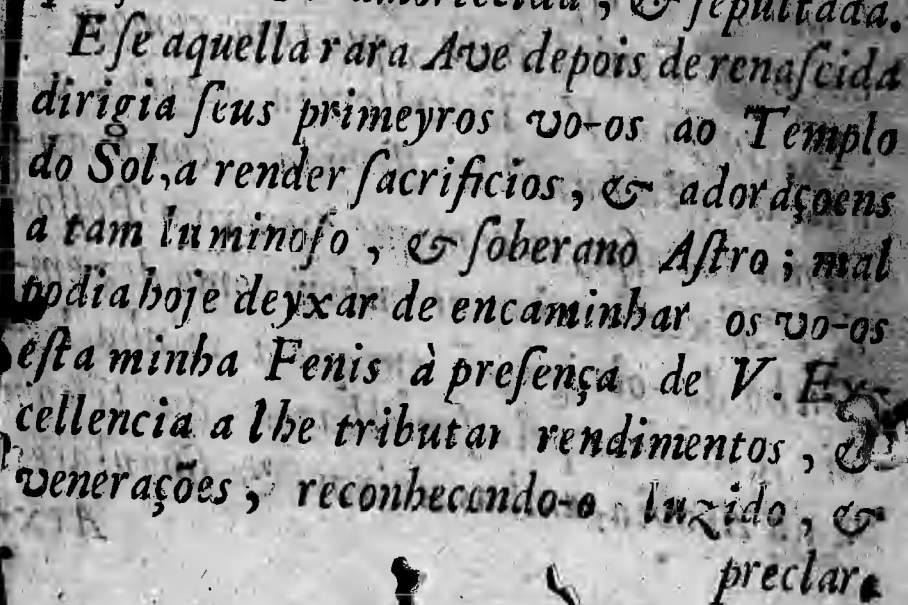 amortecida, & sepultada.
E se aquella rara Ave depois de renaſcida
dirigia ſeus primeyros vo-os ao Templo
do Sol, a render ſacrificios, & adoraçoens
a tam luminoſo, & ſoberano Aſtro; mal
podia hoje deyxar de encaminhar os vo-os
eſta minha Fenis à preſença de V. Ex-
cellencia a lhe tributar rendimentos, &
venerações, reconhecendo-o luzido, &
preclar